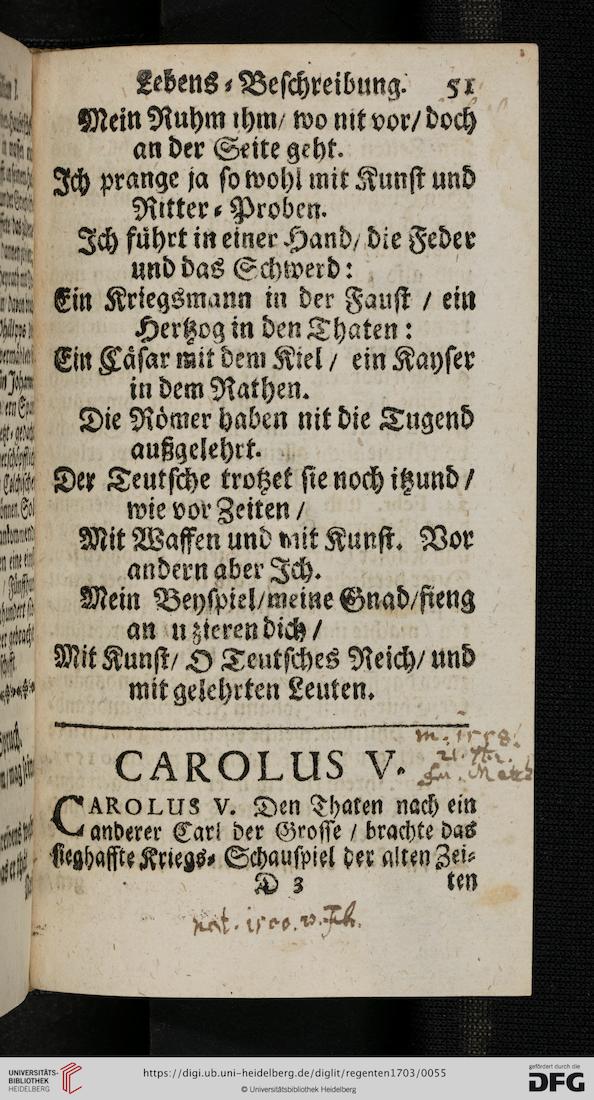 Lebens-Beschreibung. 51
Mein Ruhm ihm/ wo nit vor/ doch
an der Seite geht.
Ich prange ja so wohl mit Kunst und
Ritter-Proben.
Ich führt in einer Hand/ die Feder
und das Schwerd:
Ein Kriegsmann in der Faust / ein
Hertzog in den Thaten:
Ein Cäsar mit dem Kiel / ein Kayser
in dem Rathen.
Die Römer haben nit die Tugend
außgelehrt.
Der Teutsche trotzet sie noch itzund /
wie vor Zeiten /
Mit Waffen und mit Kunst. Vor
andern aber Ich.
Mein Beyspiel/meine Gnad/fieng
an u zieren dich /
Mit Kunst/ O Teutsches Reich/ und
mit gelehrten Leuten.
m. 1558.
21. 7br.
CAROLUS V.
CAROLUS V. Den Thaten nach ein
anderer Carl der Grosse / brachte das
sieghaffte Kriegs-Schauspiel der alten Zei-
D 3 ten
nat. 1500. Feb.
UNIVERSITÄTS-
BIBLIOTHEK
HEIDELBERG
https://digi.ub.uni-heidelberg.de/diglit/regenten1703/0055
© Universitätsbibliothek Heidelberg
gefördert durch die
DFG